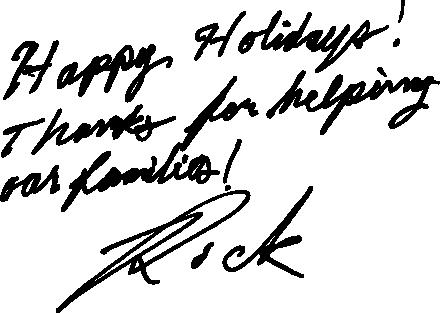 Happy Holidays!
Thanks for helping
our families!
Rock